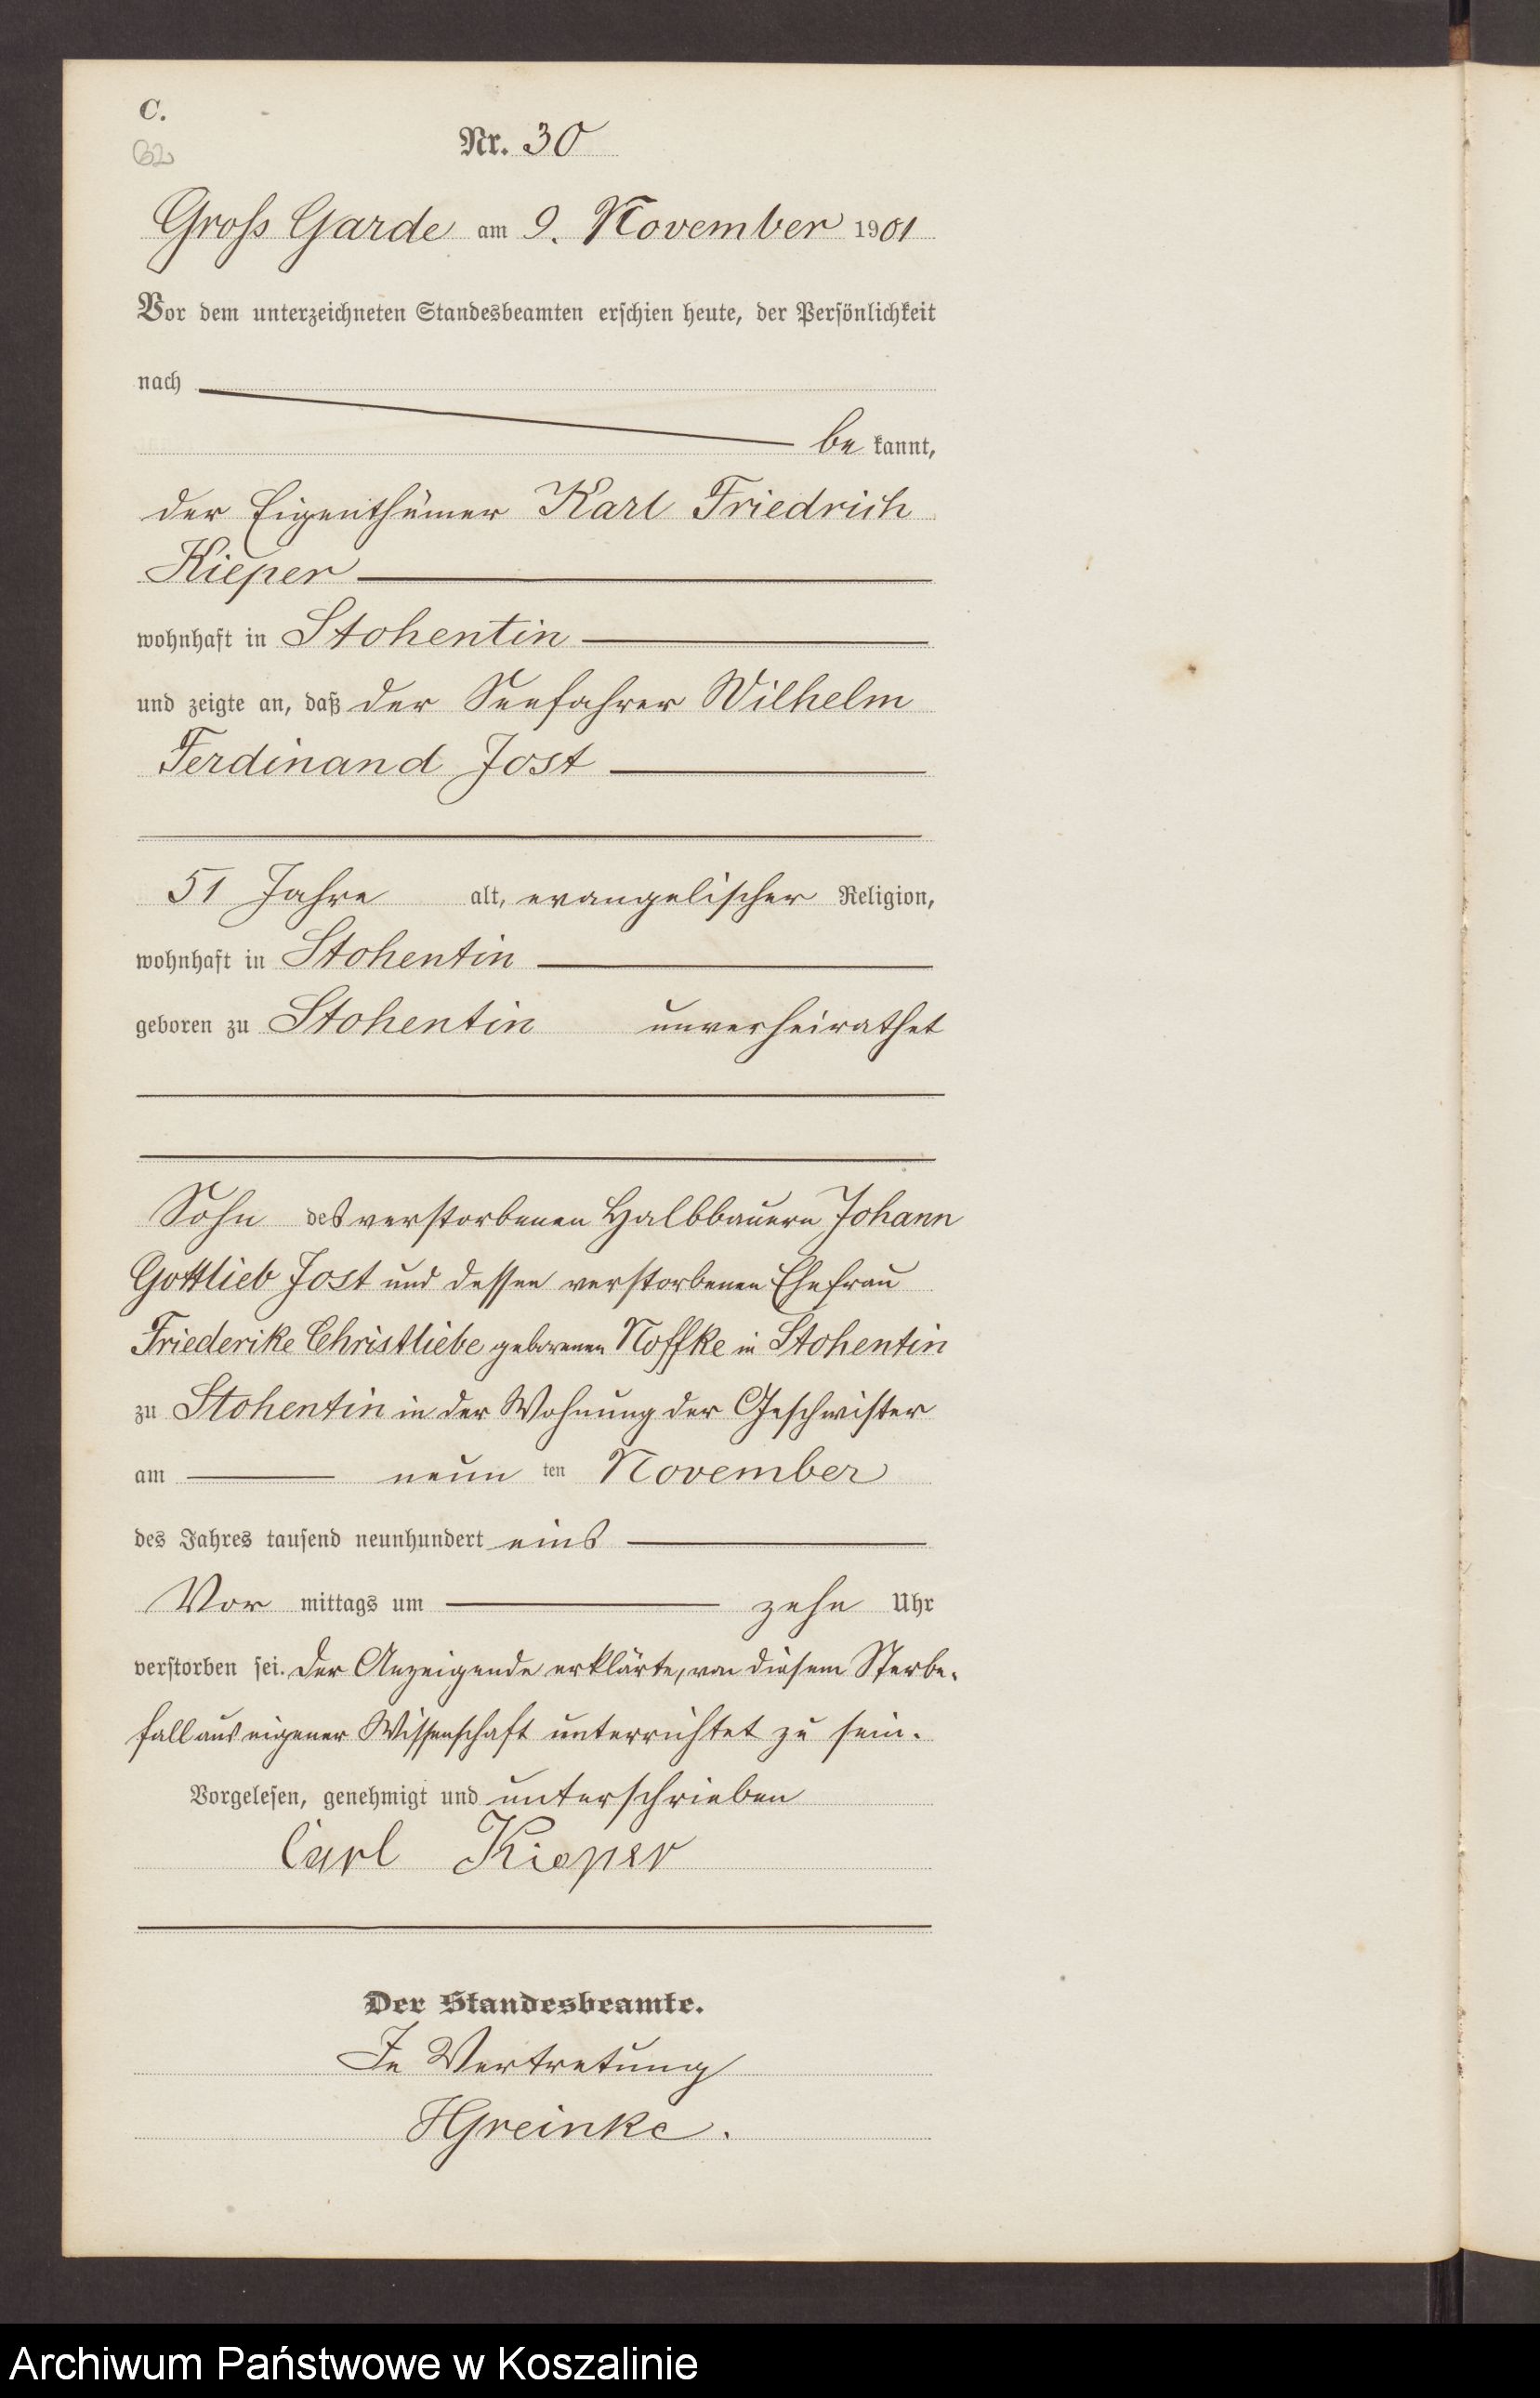 C.
32
Nr. 30
Gross Garde am 9. November 1901
Vor dem unterzeichneten Standesbeamten erschien heute, der Persönlichkeit
nach
be kannt,
der Eigenthümer Karl Friedrich
Kieper
wohnhaft in Stohentin
und zeigte an, daß der Seefahrer Wilhelm
Ferdinand Jost
51 Jahre alt, evangelischer Religion,
wohnhaft in Stohentin
geboren zu Stohentin unverheirathet
Sohn des verstorbenen Halbbauern Johann
Gottlieb Jost und dessen verstorbenen Ehefrau
Friederike Christliebe geborenen Noffke in Stohentin
zu Stohentin in der Wohnung der Geschwister
am neun ten November
des Jahres tausend neunhundert eins
Vor mittags um zehn Uhr
verstorben sei. Der Anzeigende erklärte, von diesem Sterbe-
fall aus eigener Wissenschaft unterrichtet zu sein.
Vorgelesen, genehmigt und unterschrieben
Carl Kieper
Der Standesbeamte.
In Vertretung
HGreinke.
Archiwum Państwowe w Koszalinie